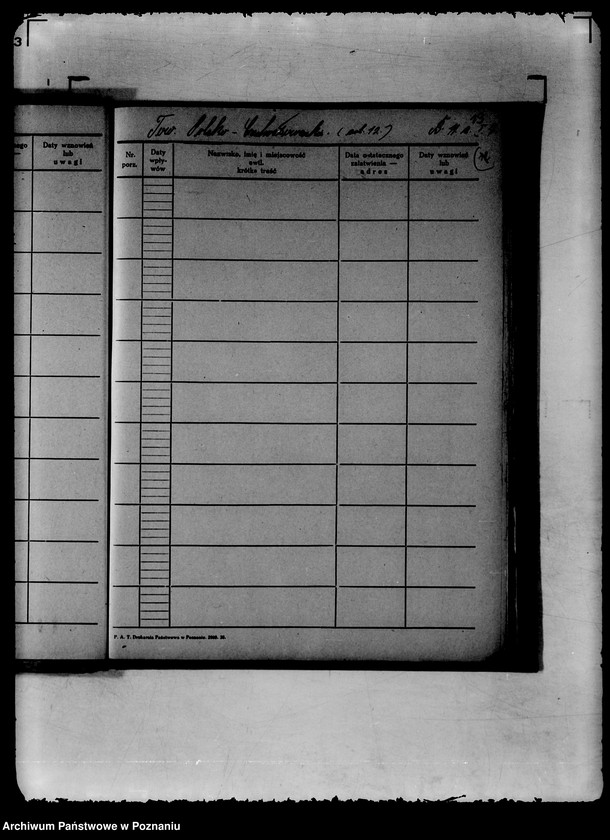 3
Tow. Polsko - (art. 12.)
Daty wznowień
lub
uwagi
Nr.
porz.
Daty
wpły-
wów
Nazwisko, imię i miejscowość
ewtl.
krótka treść
Data ostatecznego
załatwienia —
adres
Daty wznowień
lub
uwagi
P. A. T. Drukarnia Państwowa w Poznaniu.
Archiwum Państwowe w Poznaniu